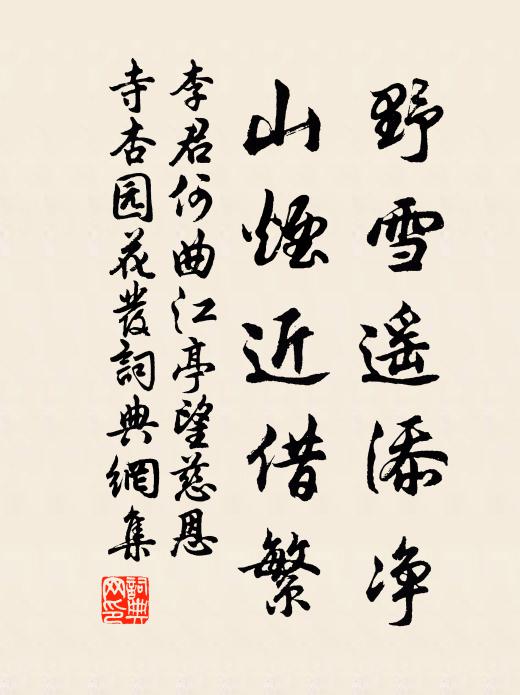 野雪遥添净
山煙近借繁
李君何曲江亭望慈恩
寺杏园花發詞典網集
詞典網印